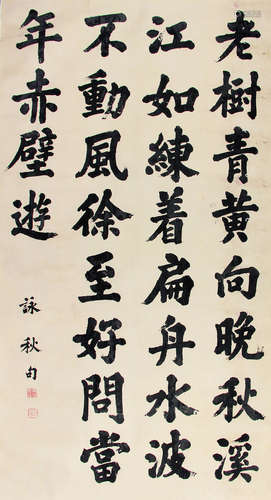 老樹青黃向晚秋溪
江如練着扁舟水波
不動風徐至好問當
年赤壁遊
詠秋句